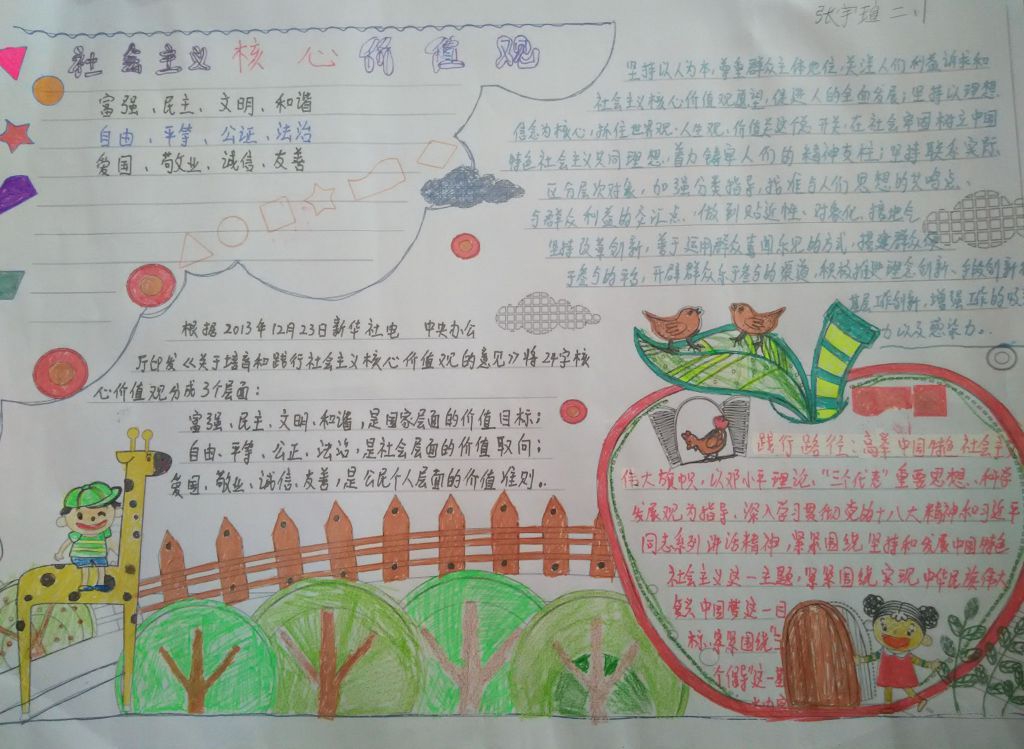 张宇瑄 二.1
社会主义核心价值观
富强、民主、文明、和谐
自由、平等、公正、法治
爱国、敬业、诚信、友善
坚持以人为本,尊重群众主体地位,关注人们利益诉求和
社会主义核心价值观愿望,促进人的全面发展;坚持以理想
信念为核心,抓住世界观、人生观、价值关这个总开关,在社会牢固树立中国
特色社会主义共同理想,着力铸牢人们的精神支柱;坚持联系实际
区分层次对象,加强分类指导,找准与人们思想的共鸣点、
与群众利益的交汇点,做到贴近性、对象化、接地气
坚持改革创新,善于运用群众喜闻乐见的方式,搭建群众便
于参与的平台,开辟群众乐于参与的渠道,积极推进理念创新、手段创新和
基层工作创新,增强工作的吸
力以及感染力。
根据2013年12月23日新华社电 中央办公
厅印发《关于培育和践行社会主义核心价值观的意见》将24字核
心价值观分成3个层面:
富强、民主、文明、和谐,是国家层面的价值目标;
自由、平等、公正、法治,是社会层面的价值取向;
爱国、敬业、诚信、友善,是公民个人层面的价值准则。
践行路径:高举中国特色社会主
伟大旗帜,以邓小平理论、"三个代表"重要思想、科学
发展观为指导、深入学习贯彻党的十八大精神和习近平
同志系列讲话精神,紧紧围绕坚持和发展中国特色
社会主义这一主题,紧紧围绕实现中华民族伟大
复兴中国梦这一目
标,紧紧围绕"三
个倡导"这一基